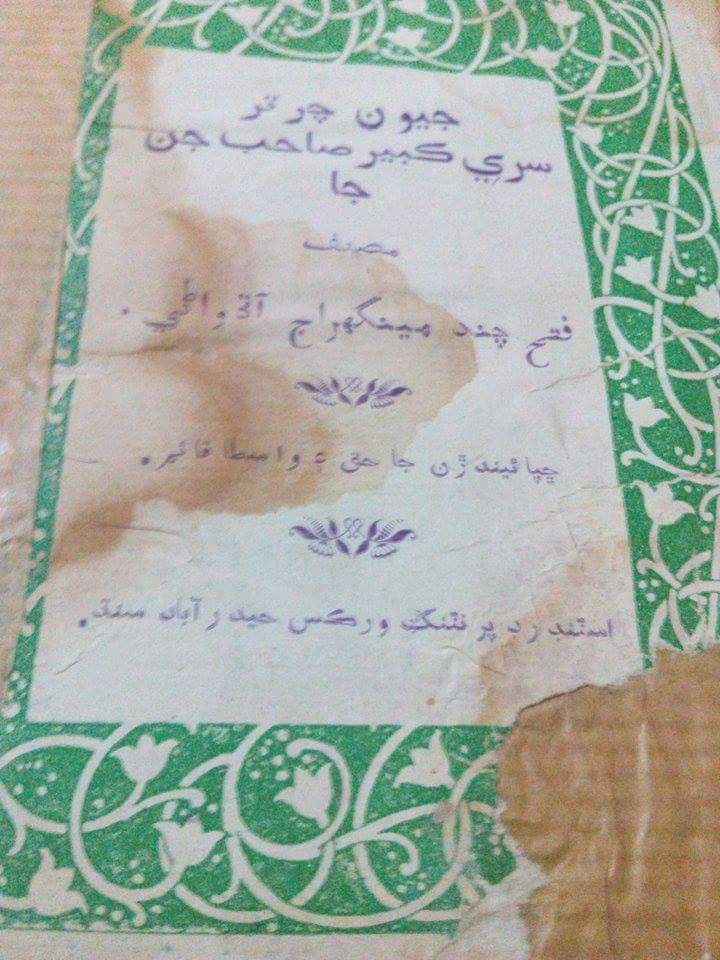 جيون چرتر
سري ڪبير صاحب جن
جا
مصنف
فتح چند مينگهراج
ڇپائيندڙن جا حق ۽ واسطا قائم.
اسٽنڊرڊ پرنٽنگ ورڪس حيدرآباد سنڌ.